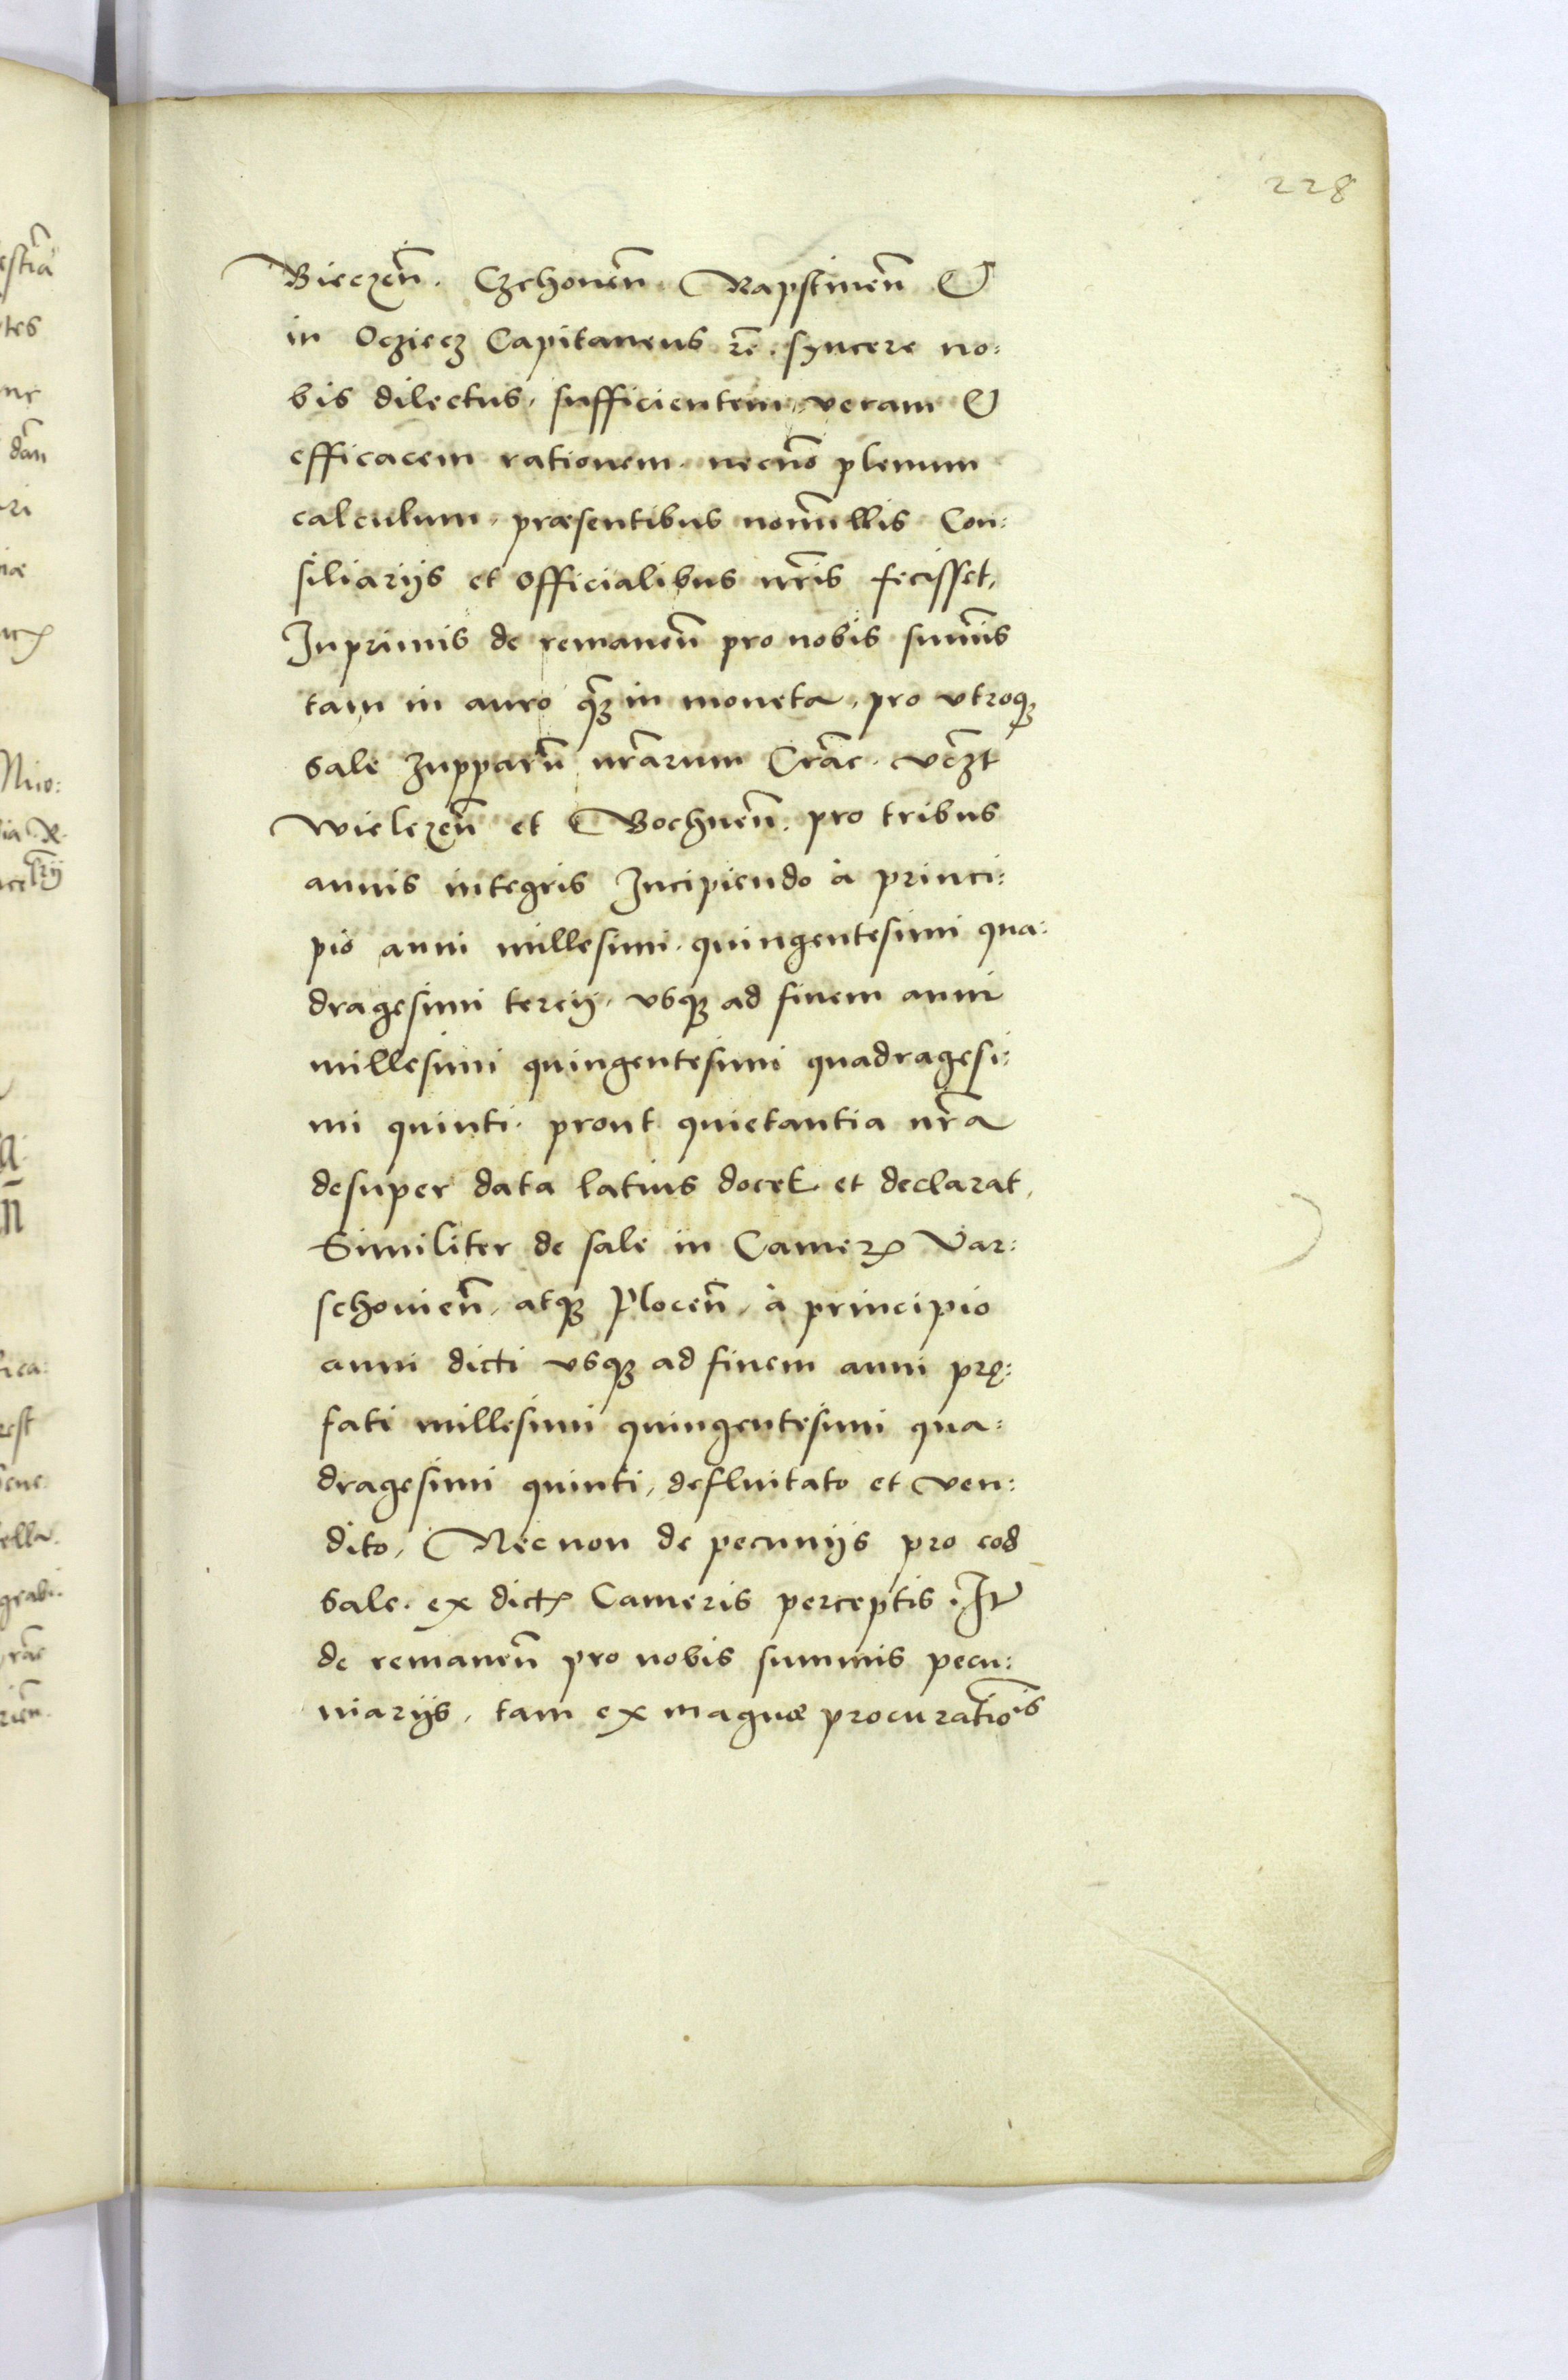 228
Bieczeñ. Czchoueñ. Rapstineñ &
in Ocziecz Capitaneus rẽ. syncere no:
bis dilectus, sufficientem, veram &
efficacem rationem. necnõ plenum
calculum, præsentibus nonnullis Con:
siliarijs et officialibus nr̃is fecisset,
Inprimis de remaneñ pro nobis sum̃is
tam in auro q̃ȝ in moneta, pro vtroqȝ
sale zupparũ nr̃arum Crac̃. vcꝫt
wielczeñ et Bochneñ. pro tribus
annis integris Incipiendo à princi:
pio anni millesimi. quingentesimi qua:
dragesimi tercij, vsqȝ ad finem anni
millesimi quingentesimi quadragesi:
mi quinti. prout quietantia nr̃a
desuper data latius docet et declarat,
Similiter de sale in Cameꝝ Var:
schouieñ, atqȝ Ploceñ, à principio
anni dicti vsqȝ ad finem anni prę:
fati millesimi quingentesimi qua:
dragesimi quinti, defluitato et ven:
dito, Nec non de pecunijs pro eod
sale. ex dictꝭ Cameris perceptis. It
de remaneñ pro nobis summis pecu:
niarijs, tam ex magnæ procuratiõis